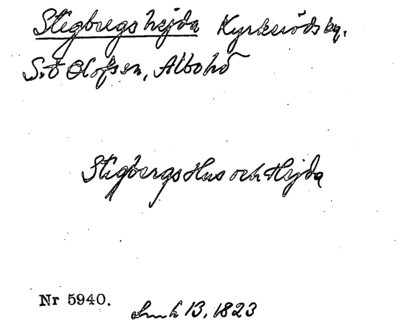 Stigbergs hejda Kyrkeröds by.
S:t Olofsen, Albohd
Stigbergs Hus och Hejda
Nr 5940. Lmh B. 1823